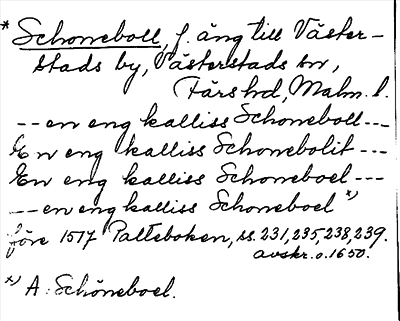 * Schonneboll, f. äng till Väster-
stads by, Västerstads sn,
Färs hd, Malm. l.
-- en eng kalliss Schonneboll ---
En eng kalliss Schonnebolit ---
En eng kalliss Schonneboel ---
-- en eng kalliss Schonneboel x)
före 1517 Palteboken, ss. 231, 235, 238, 239.
avskr. o. 1650.
x) A: Schöneboel.